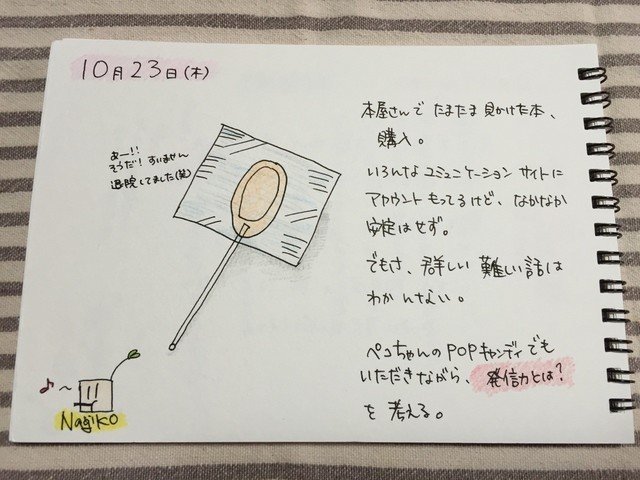 10月23日(木)
あー!!
そうだ! すいません
退院してました(笑)
本屋さんで たまたま 見かけた本、
購入。
いろんな コミュニケーション サイトに
アカウント もってるけど、なかなか
安定はせず。
でもさ、群しい 難しい 話は
わかんない。
ペコちゃんの POPキャンディ でも
いただきながら、発信力とは?
を 考える。
♪〜
Nagiko